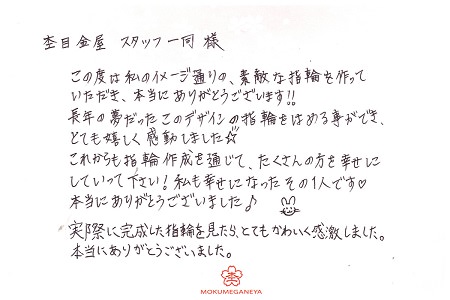 杢目金屋 スタッフ一同 様
この度は私のイメージ通りの、素敵な指輪を作って
いただき、本当にありがとうございます!!
長年の夢だったこのデザインの指輪をはめる事ができ、
とても嬉しく感動しました☆
これからも指輪作成を通じて、たくさんの方を幸せに
していって下さい!私も幸せになったその1人です♡
本当にありがとうございました♪
実際に完成した指輪を見たら、とてもかわいく感激しました。
本当にありがとうございました。
MOKUMEGANEYA